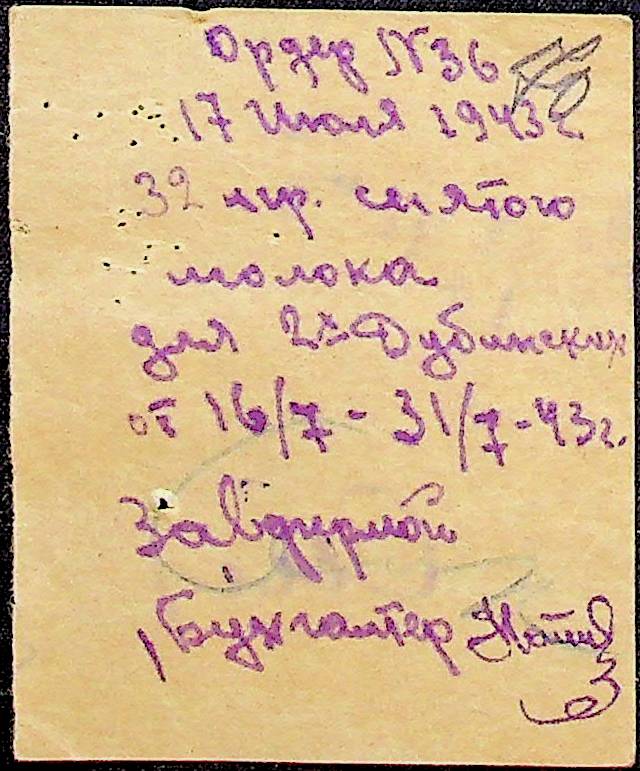 Ордер N 36
17 Июля 1943 г
32 лтр. снятого
молока
для 2х Дубинских
от 16/7 - 31/7 - 43 г.
Завфермой
Бухгалтер